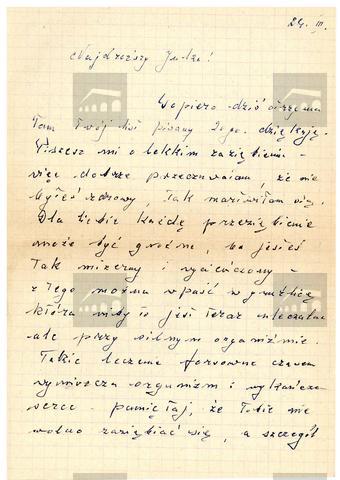 24. III.
Najdroższy Ju-ka!
Dopiero dziś otrzyma
Łam Twój list pisany 20 go. dziękuję.
Piszesz mi o lekkim zaziębieniu -
więc dobrze przeczuwałam, że nie
byłeś zdrowy, tak martwiłam się.
Dla Ciebie każde przeziębienie
może być groźne, bo jesteś
tak mizerny i wycieńczony -
z tego można wpaść w gruźlicę
która niby to jest teraz uleczalna
ale przy silnym organiźmie.
Takie leczenie forsowne czasem
wyniszcza organizm i wykańcza
serce - pamiętaj, że Tobie nie
wolno zaziębiać się, a szczegól